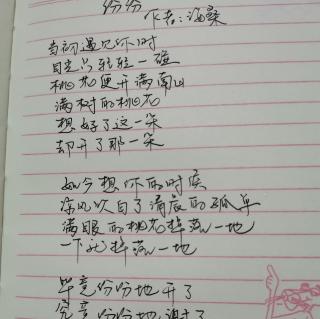 纷纷
作者：海桑
当初遇见你时
目光只轻轻一碰
桃花便开满南山
满树的桃花
想好了这一朵
却开了那一朵
如今想你的时候
凉风吹白了清晨的孤单
满眼的桃花掉落一地
一下就掉落一地
毕竟纷纷地开了
究竟纷纷地谢了